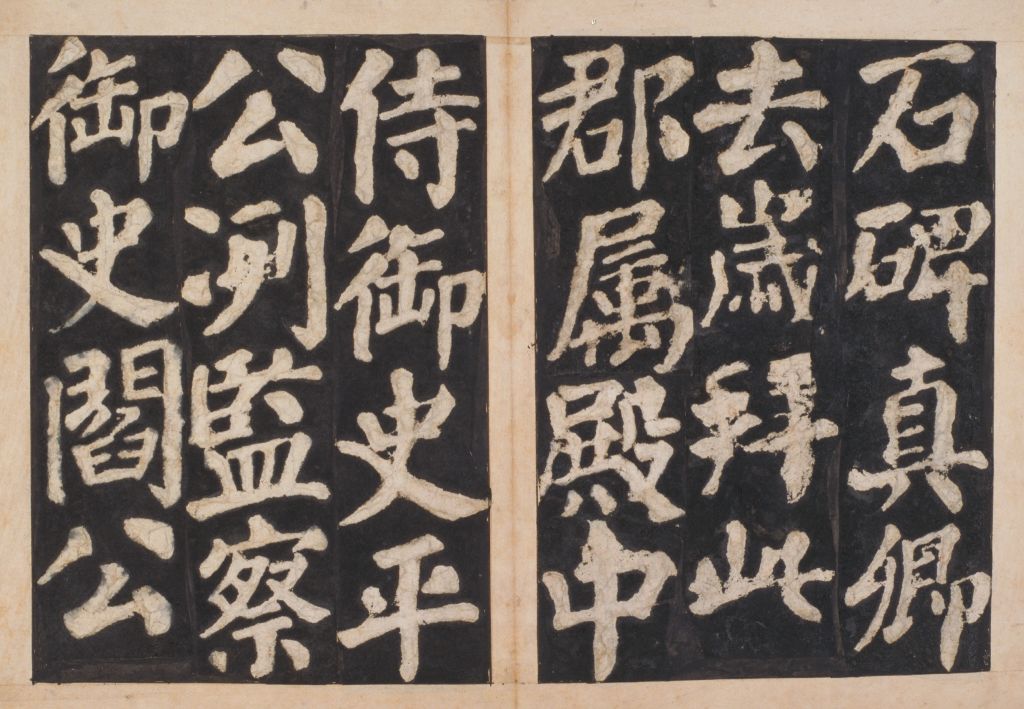 石碑真卿
去歲拜此
郡属殿中
侍御史平
公冽監察
御史閻公